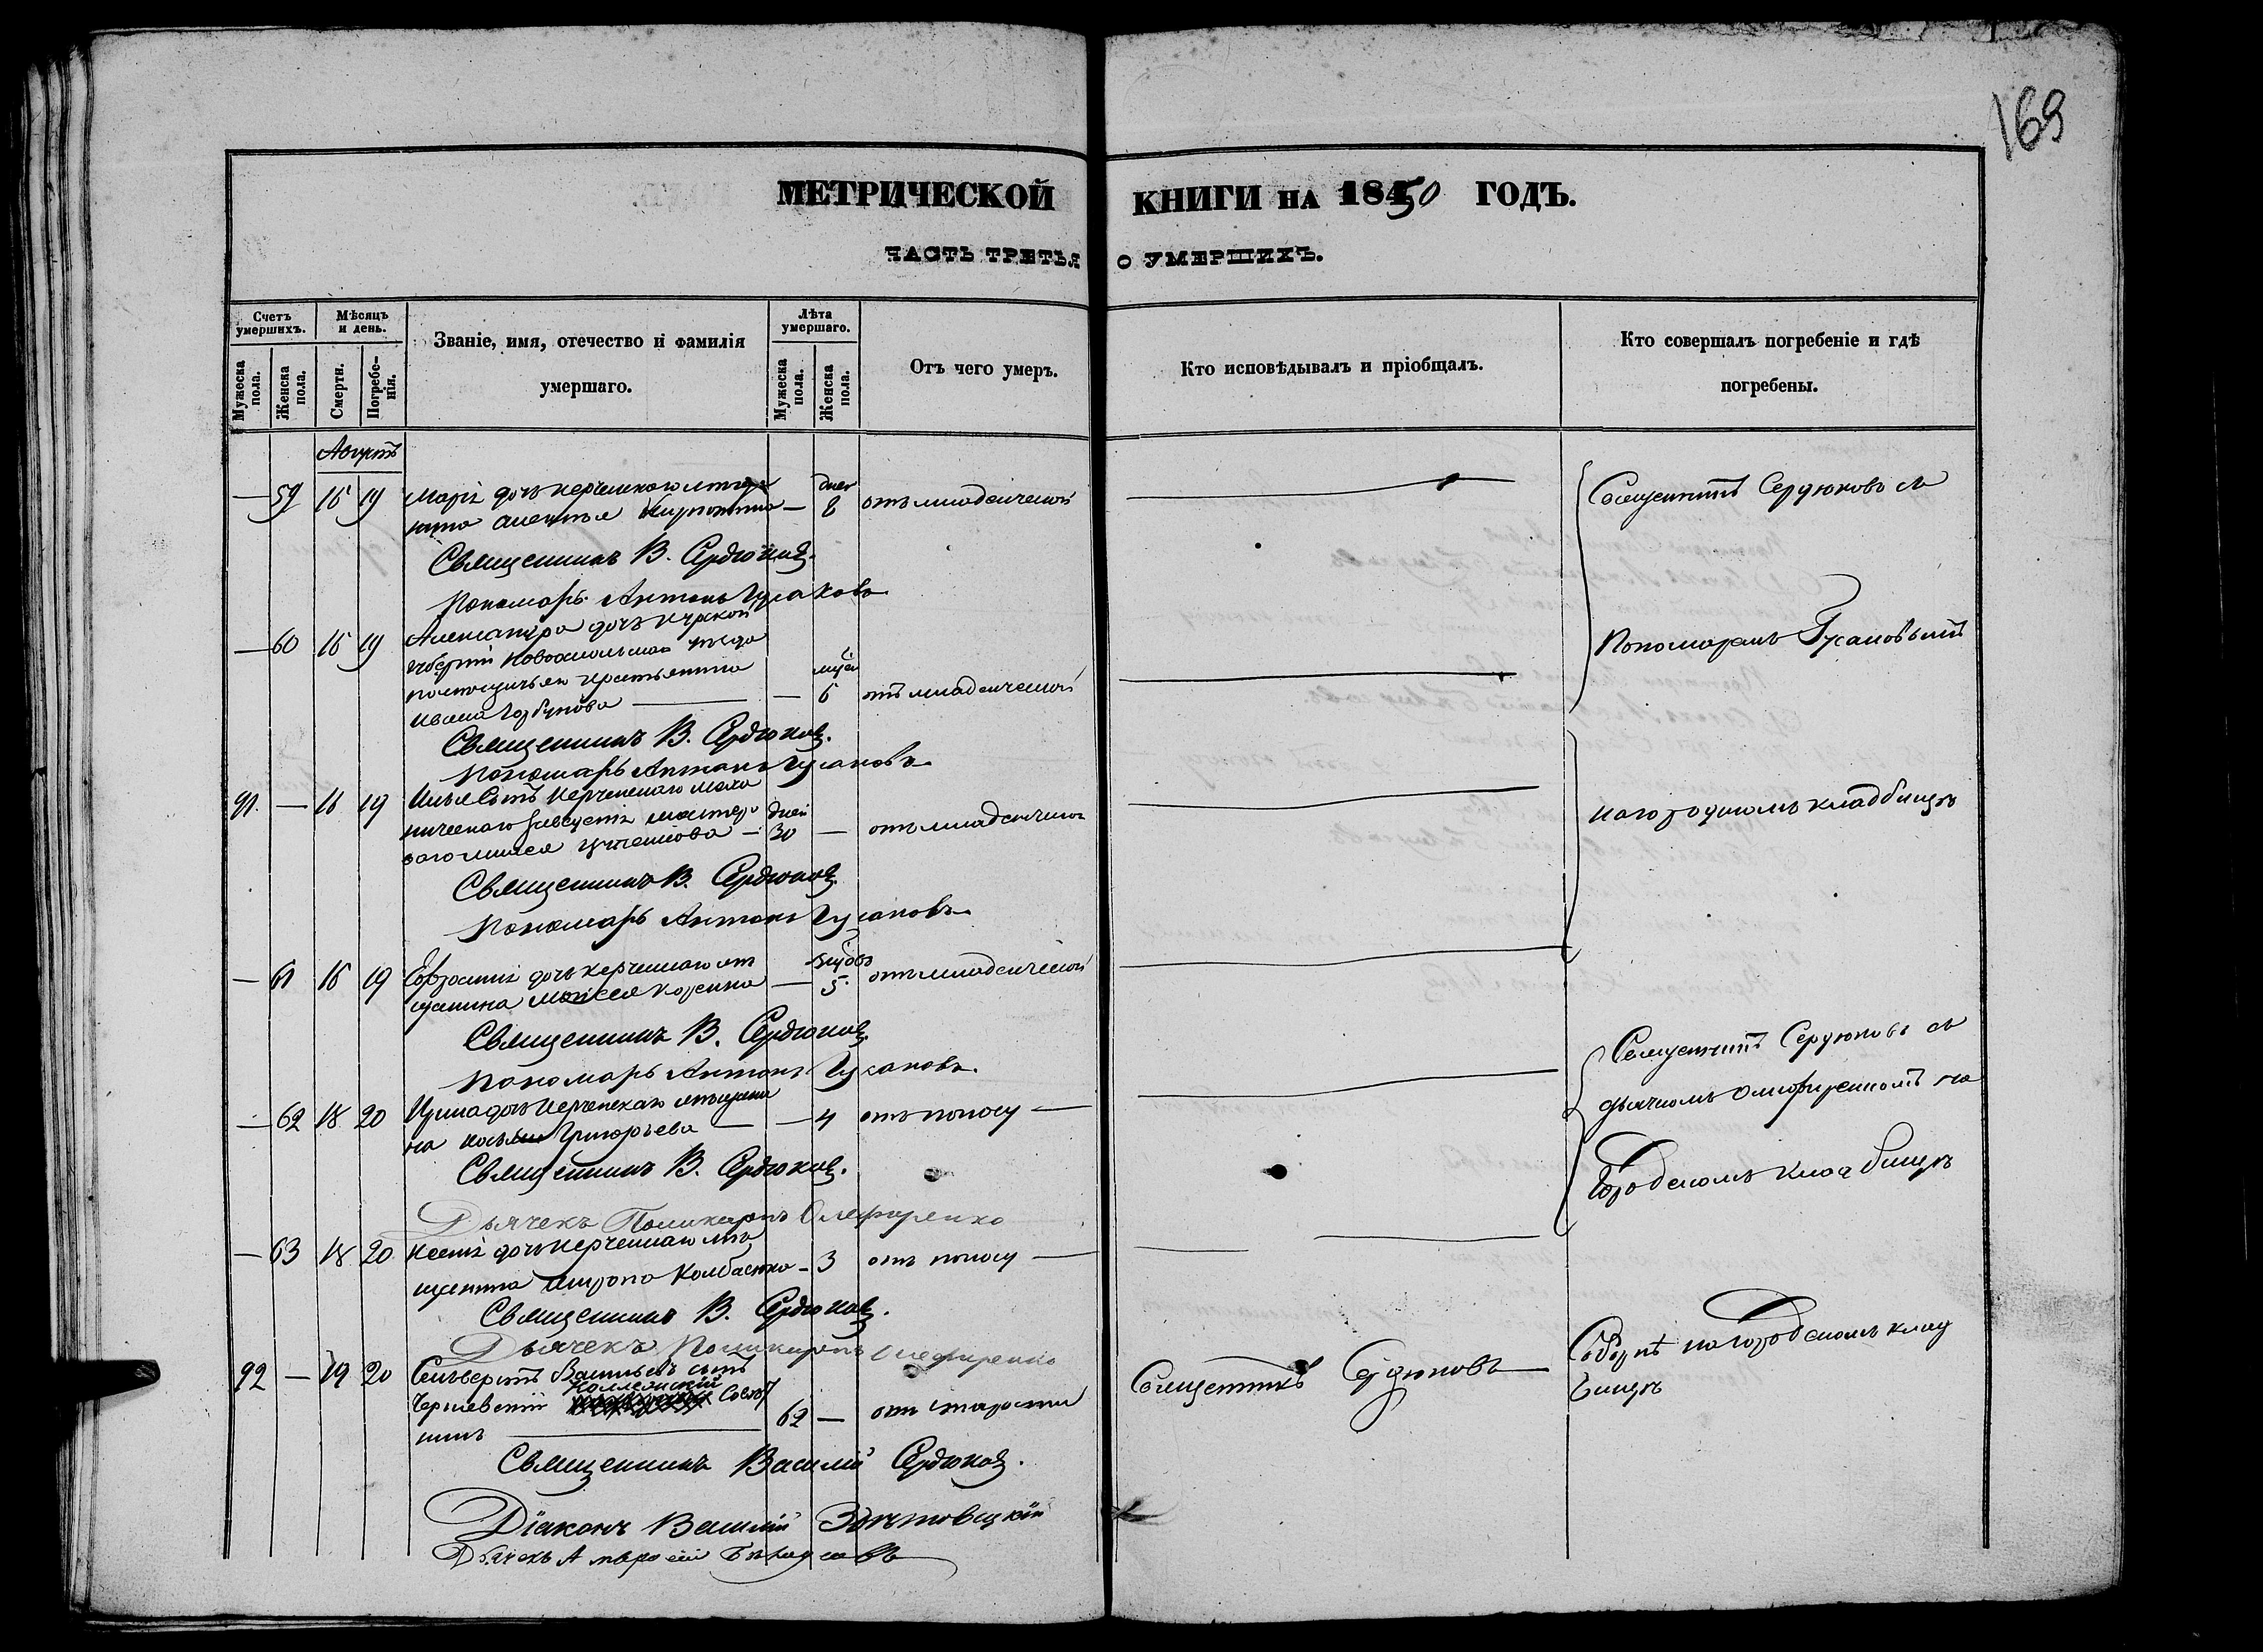 169
МЕТРИЧЕСКОЙ КНИГИ НА 1850 ГОДЪ.
ЧАСТЬ ТРЕТЬЯ О УМЕРШИХЪ.
Счетъ умершихъ.
Мѣсяцъ и день.
Званіе, имя, отечество и фамилія умершаго.
Лѣта умершаго.
Отъ чего умеръ.
Кто исповѣдывалъ и пріобщалъ.
Кто совершалъ погребеніе и гдѣ погребены.
Мужеска пола.
Женска пола.
Смерти.
Погребенія.
Мужеска пола.
Женска пола.
Августъ
— 59 16 19 Марія дочь керченскаго — дней 8 отъ младенческой
Священникъ Сердюковъ съ
Священникъ В. Сердюковъ.
Пономарь Антонъ Гусаковъ
— 60 16 19 Александра дочь Курской
губерніи Новооскольскаго уѣзда
крестьянина
Ивана Горбунова — — 6 отъ младенческой
Пономаремъ Гусаковымъ
Священникъ В. Сердюковъ.
Пономарь Антонъ Гусаковъ
91. — 16 19 Илья сынъ Керченскаго
дней
30 — отъ младенческой
на городскомъ кладбищѣ
Священникъ В. Сердюковъ
Пономарь Антонъ Гусаковъ
— 61 16 19 Евфросинія дочь керченскаго мѣ
щанина Моисея — 5. отъ младенческой
Священникъ В. Сердюковъ
Пономарь Антонъ Гусаковъ.
Священникъ Сердюковъ съ
— 62 18 20 Ирина дочь Керченскаго мѣщани
на Григорьева — — 4 отъ поносу —
дьячкомъ Олефиренкомъ на
Священникъ В. Сердюковъ.
Городскомъ кладбищѣ
Дьячекъ Поликарпъ Олефиренко
— 63 18 20 Ксенія дочь Керченскаго мѣ
щанина Колбасюка — 3 отъ поносу —
Священникъ В. Сердюковъ.
Дьячекъ Поликарпъ Олефиренко
92 — 19 20 Селиверстъ Васильевъ сынъ
Коллежскій
Чернявскій Совѣт
никъ — 62 — отъ старости
Священникъ Сердюковъ —
Соборнѣ на городскомъ клад
бищѣ
Священникъ Василій Сердюковъ.
Діаконъ Василій
Дьячекъ Амвросій